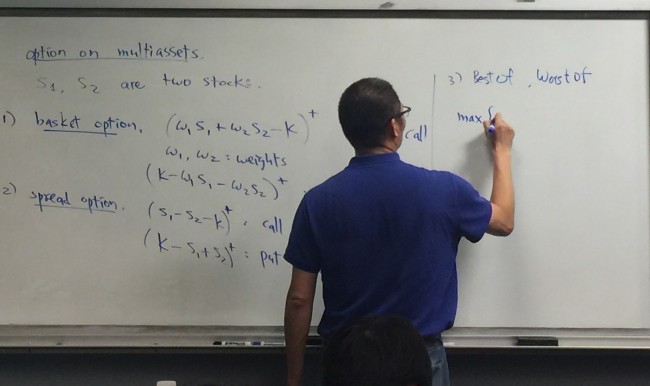 option on multiassets.
S₁, S₂ are two stocks.
1) basket option, (ω₁S₁ + ω₂S₂ - K)⁺ call
ω₁, ω₂ : weights
(K - ω₁S₁ - ω₂S₂)⁺ :
2) spread option. (S₁ - S₂ - K)⁺ : call
(K - S₁ + S₂)⁺ : put
3) Best of , Worst of
max {